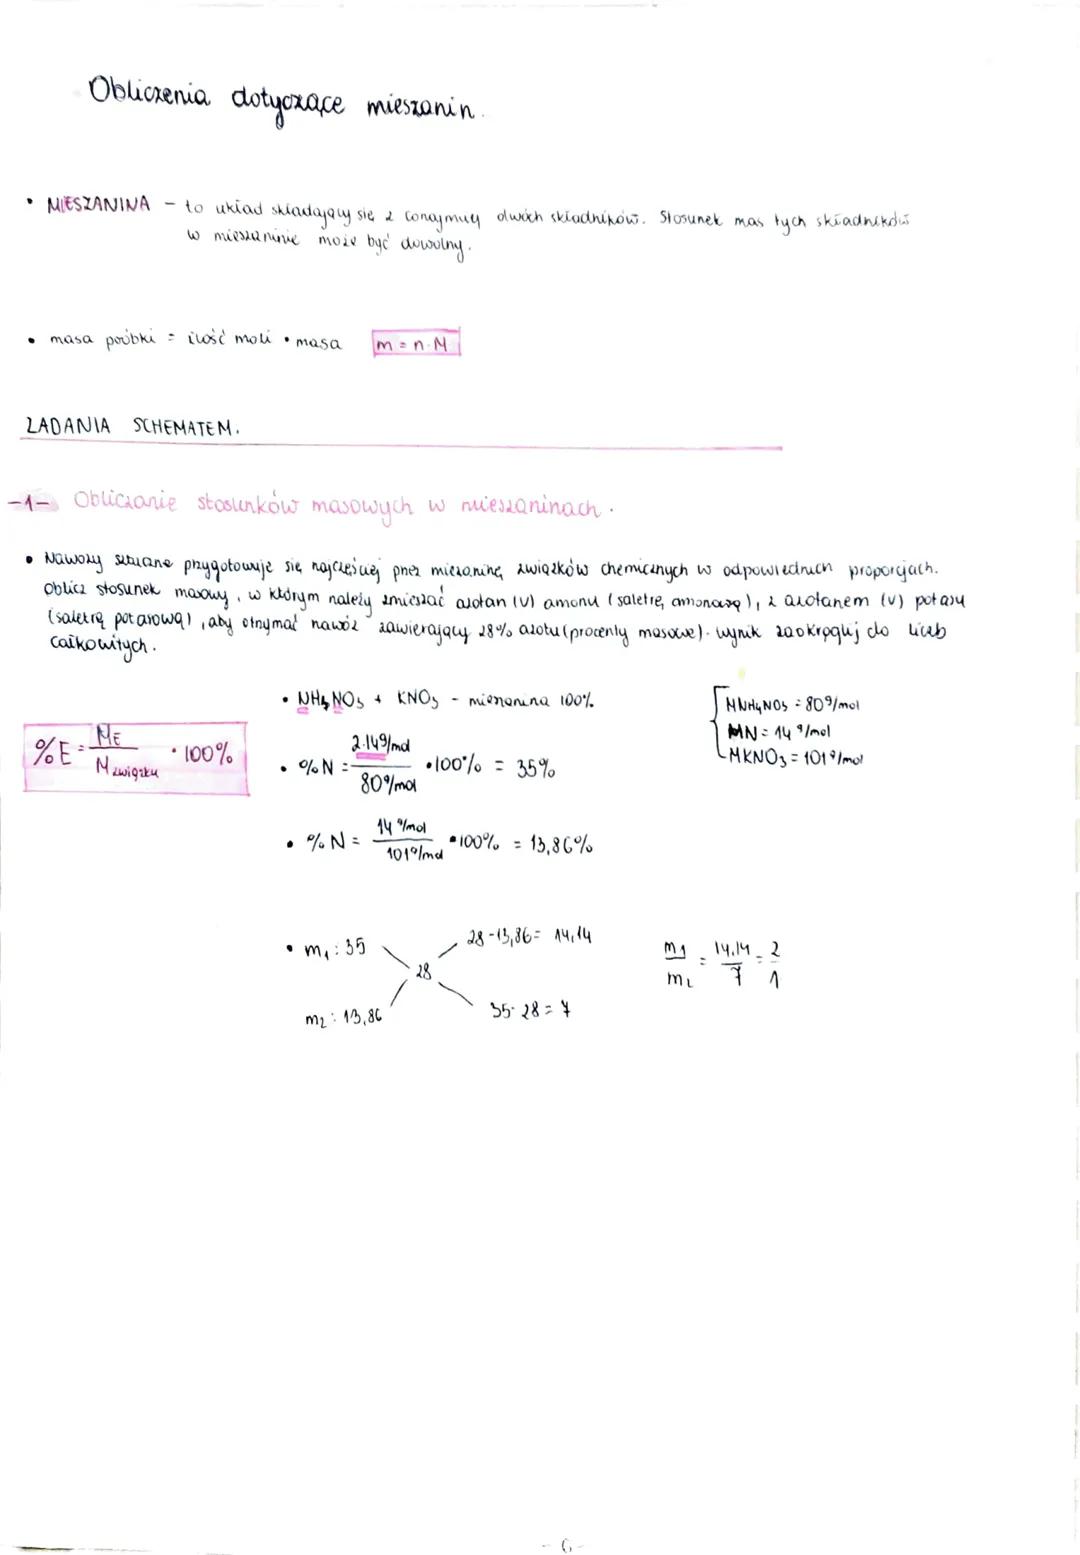 Obliczenia dotyczące mieszanin.
• MIESZANINA - to układ składający się z conajmniej dwóch składników. Stosunek mas tych składników
w mieszaninie może być dowolny.
• masa próbki = ilość moli • masa m = n · M
ZADANIA SCHEMATEM.
-1- Obliczanie stosunków masowych w mieszaninach.
• Nawozy sztuczne przygotowuje się najczęściej przez mieszaninę związków chemicznych w odpowiednich proporcjach.
Oblicz stosunek masowy, w którym należy zmieszać azotan (V) amonu (saletrę amonową), z azotanem (V) potasu
(saletrą potasową), aby otrzymać nawóz zawierający 28% azotu (procenty masowe). Wynik zaokrąglij do liczb
całkowitych.
• NH4NO3 + KNO3 - mieszanina 100%
MNH4NO3 = 80 g/mol
MN = 14 g/mol
MKNO3 = 101 g/mol
%E = ME / Mzwiązku · 100%
• %N = 2·14g/mol / 80g/mol • 100% = 35%
• %N = 14 g/mol / 101g/mol • 100% = 13,86%
• m1 : 35 28-13,86= 14,14
28
m2 : 13,86 35-28 = 7
m1 / m2 = 14,14 / 7 = 2 / 1
- 6 -